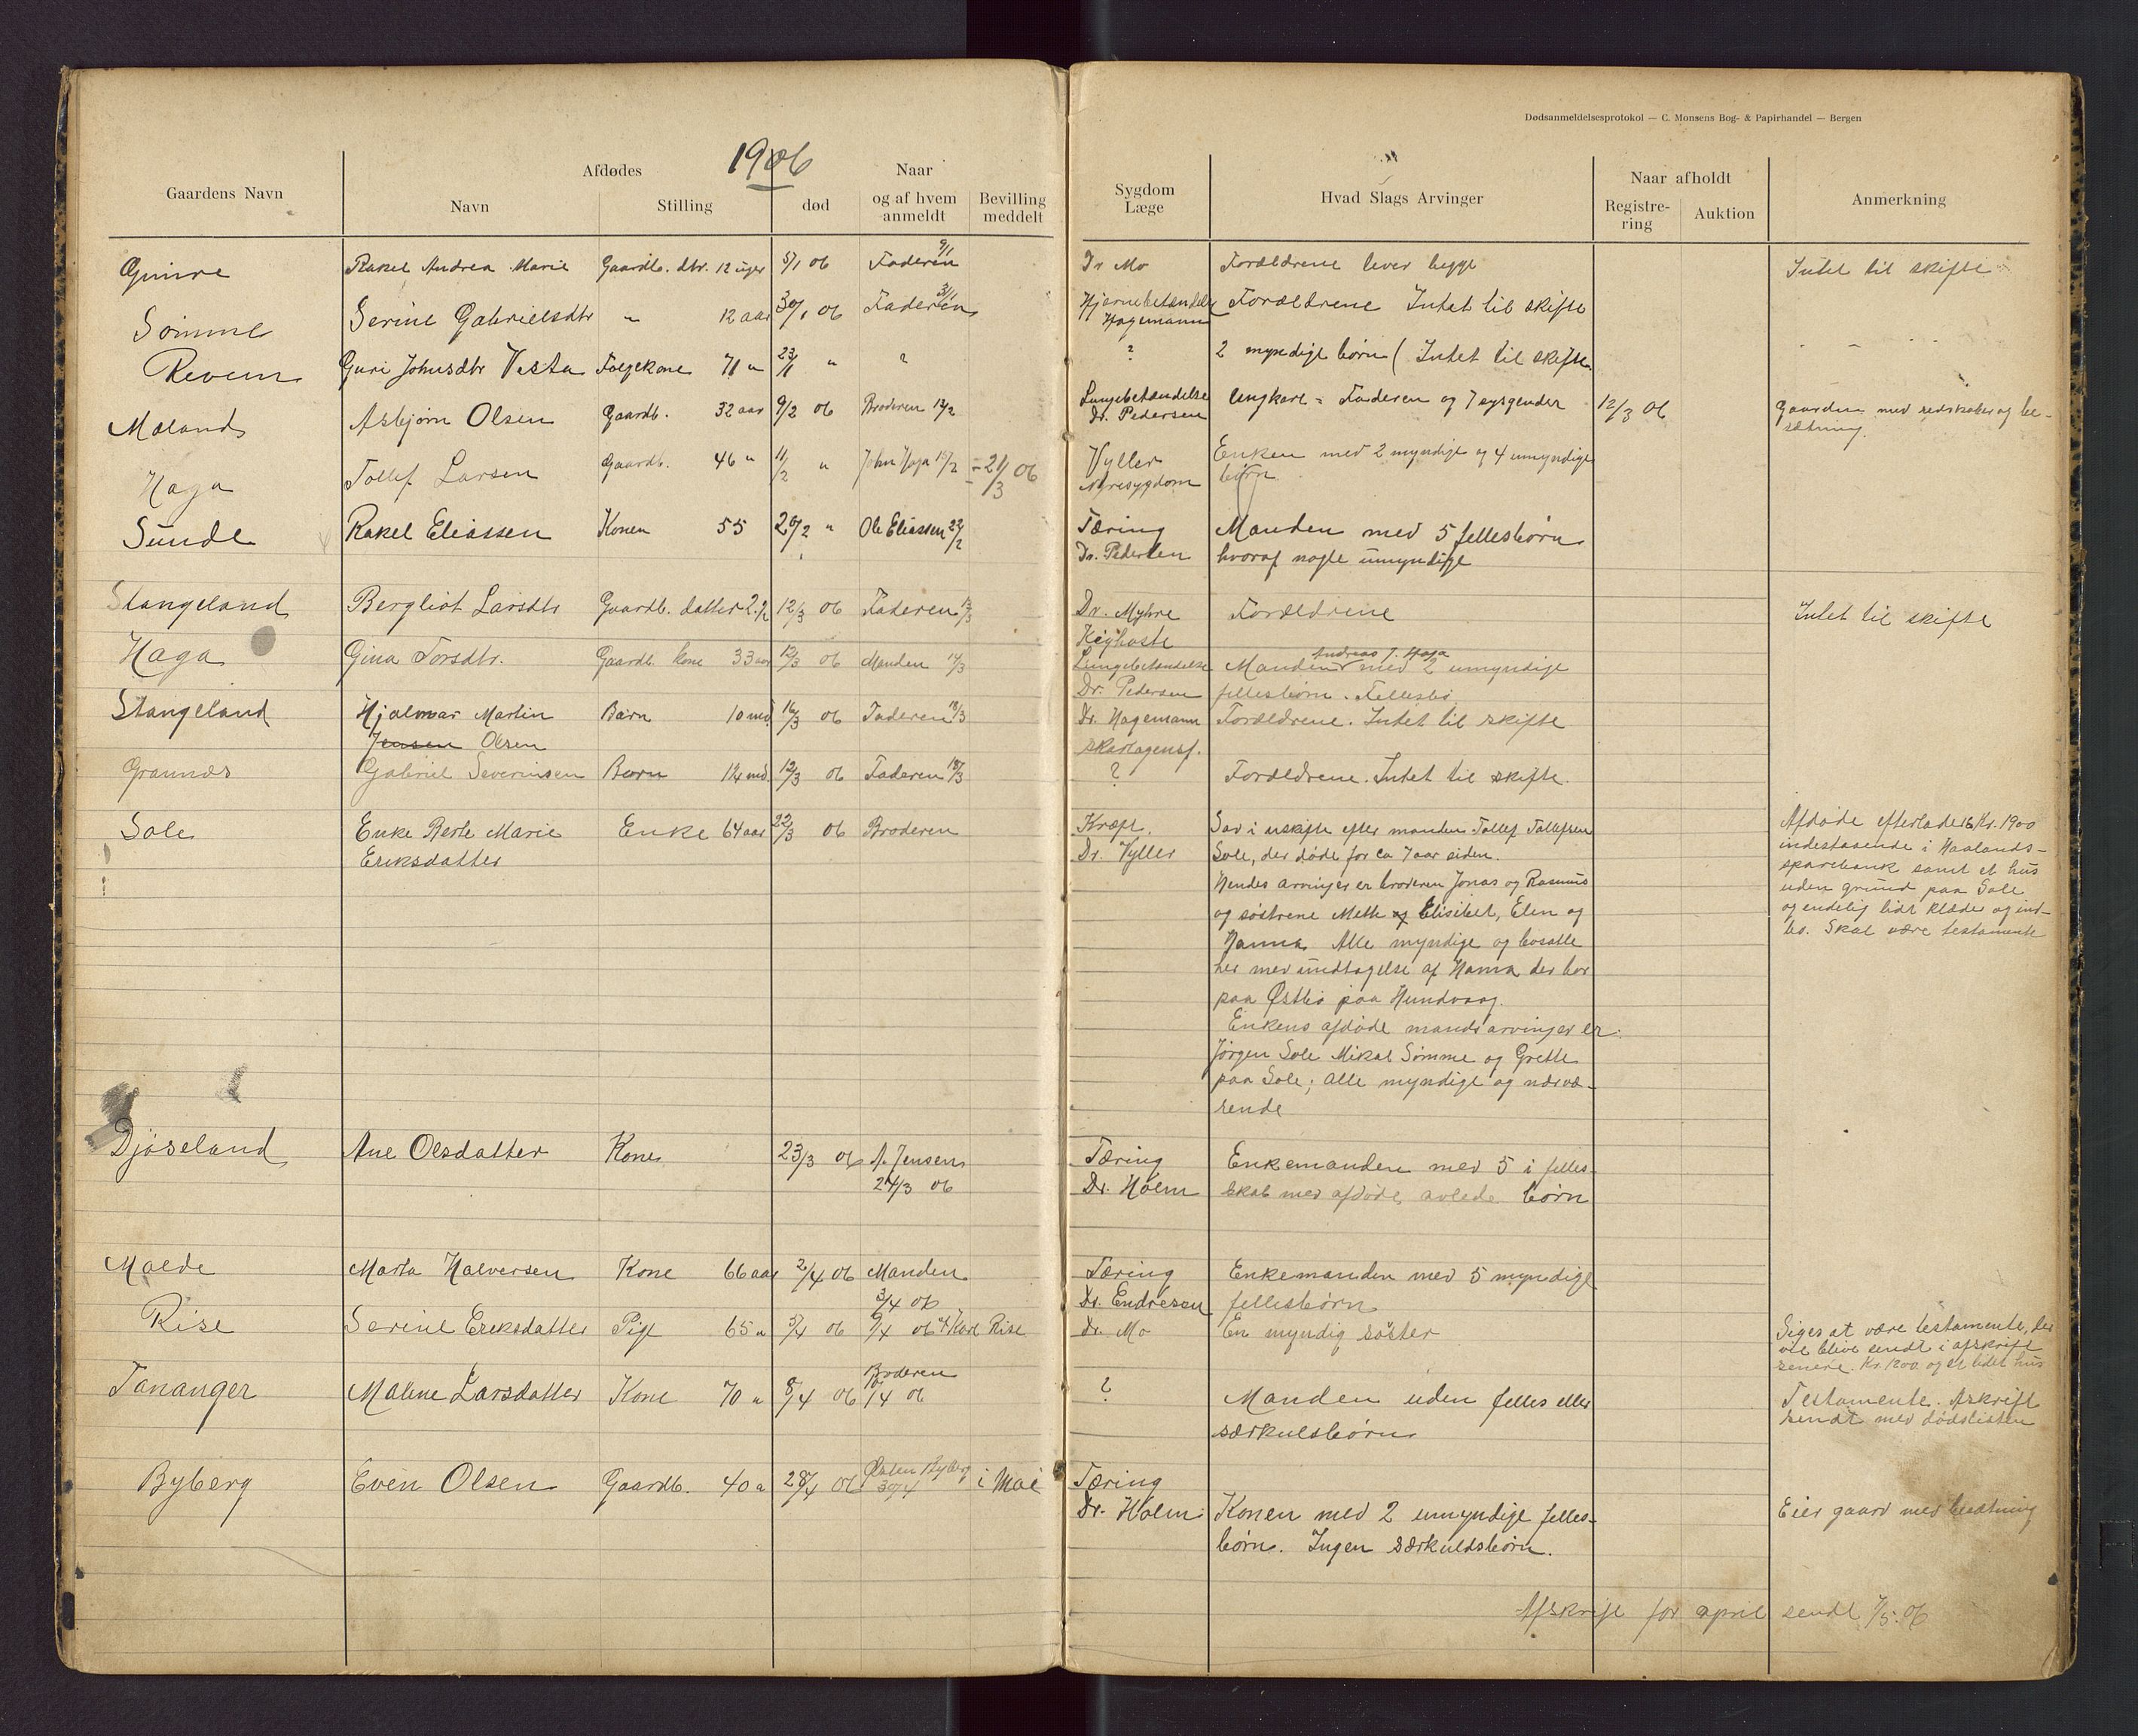 Dødsanmeldelsesprotokol — C. Monsens Bog- & Papirhandel — Bergen
1906
Gaardens Navn Afdødes Naar
Navn Stilling død og af hvem anmeldt Bevilling meddelt
Sygdom Læge Hvad Slags Arvinger Naar afholdt Anmerkning
Registrering Auktion
Gimre Rakel Andrea Marie Gaardb. dtr. 12 uger 5/1 06 Faderen 9/1 Dr Mo Forældrene lever begge Intet til skifte
Sømme Serine Gabrielsdtr " 12 aar 30/1 06 Faderen 31/1 Hjernebetændelse Forældrene Intet til skifte
Hagemann
Revem Guri Johnsdtr Vesta Følgekone 71 " 23/1 " ? ? 2 myndige børn ( Intet til skifte
Meland Asbjørn Olsen Gaardb. 32 aar 9/2 06 Broderen 12/2 Lungebetændelse Ungkarl = Faderen og 7 sysgender 12/3 06 Gaarden med redskaber og be-
Dr. Pedersen sætning
Haga Tollef Larsen Gaardb. 46 " 11/2 " John Haga 15/2 = 21/3 06 Vyller Enken med 2 myndige og 4 umyndige
Nyresygdom børn
Sunde Rakel Eliassen Konen 55 20/2 " Ole Eliassen 22/2 Tæring Manden med 5 fellesbørn
Dr. Pedersen hvoraf nogle umyndige
Stangeland Bergliot Larsdtr Gaardb. datter 2 1/2 12/3 06 Faderen 13/3 Dr. Myhre Forældrene Intet til skifte
Kighoste
Haga Gina Torsdtr. Gaardb. kone 33 aar 12/3 06 Manden 14/3 Lungebetændelse Manden Andreas T. Haga med 2 umyndige
Dr. Pedersen fellesbørn. Fellesbo
Stangeland Hjalmar Martin Barn 10 md. 16/3 06 Faderen 18/3 Dr. Hagemann Forældrene. Intet til skifte
Jensen Olsen skarlagensf.
Grannæs Gabriel Severinsen Barn 14 md 12/3 06 Faderen 18/3 ? Forældrene. Intet til skifte.
Sole Enke Berte Marie Enke 64 aar 22/3 06 Broderen Kræft. Sad i uskifte efter manden Tollef Tollefsen Afdøde efterlader Kr. 1900
Eriksdatter Dr. Vyller Sole, der døde for ca 7 aar siden. indestaaende i Haalands-
Hendes arvinger er broderen Jonas og Rasmus sparebank samt et hus
og søstrene Mette og Elisibet, Elen og uden grund paa Sole
Hanna Alle myndige og bosatte og endelig lidt klæder og ind-
her med undtagelse af Hanna der bor bo. Skal være testamente
paa Østbø paa Hundvaag.
Enkens afdøde mands arvinger er:
Jørgen Sole Mikal Sømme og Grette
paa Sole; alle myndige og nærvæ-
rende
Djøseland Ane Olsdatter Kone 23/3 06 A. Jensen Tæring Enkemanden med 5 i felles-
24/3 06 Dr. Holm skab med afdøde avlede børn
Malde Marta Halversen Kone 66 aar 2/4 06 Manden Tæring Enkemanden med 5 myndige
3/4 06 Dr. Endresen fellesbørn
Rise Serine Eriksdatter Pige 65 " 5/4 06 9/4 06 af Karl Rise Dr. Mo En myndig søster Siges at være testamente, der
vil blive sendt i afskrift
senere. Kr. 1200 og et lidet hus
Tananger Maline Larsdatter Kone 70 " 8/4 06 Broderen ? Manden uden felles eller Testamente. Afskrift
/4 06 særkulsbørn sendt med dødslisten
Byberg Even Olsen Gaardb. 40 " 28/4 06 Byberg i Mai Tæring
30/4 Dr. Holm Konen med 2 umyndige felles- Eier gaard med besætning
børn. Ingen særkuldsbørn.
Afskrift for april sendt 7/5. 06